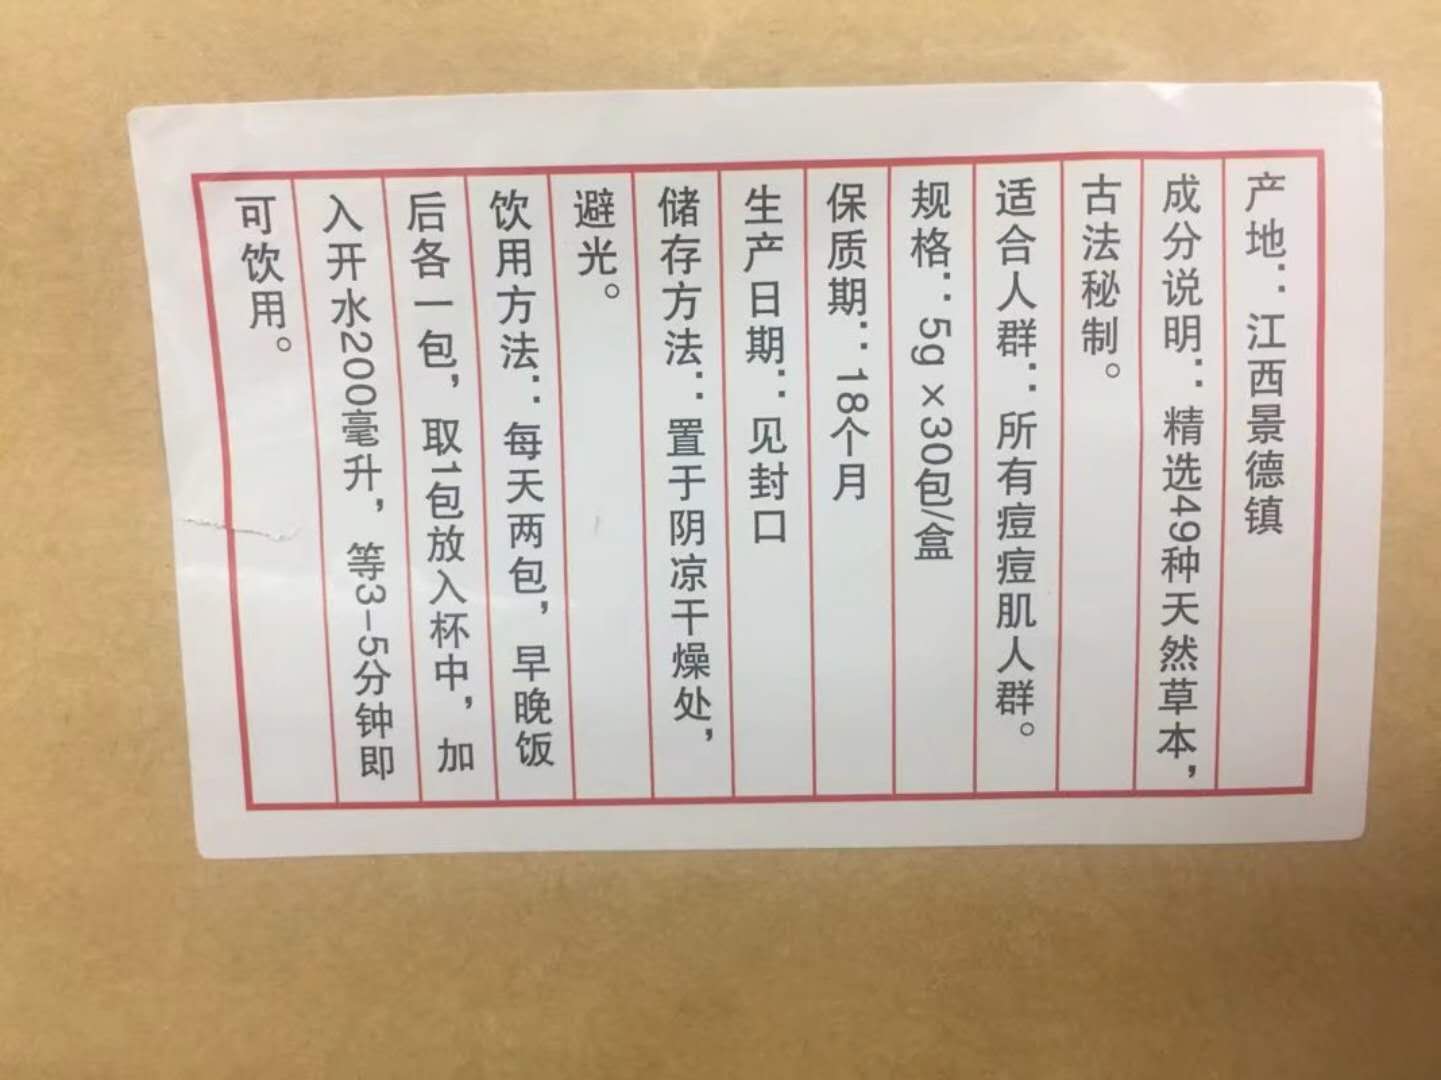 产地：江西景德镇
成分说明：精选49种天然草本，
古法秘制。
适合人群：所有痘痘肌人群。
规格：5g×30包/盒
保质期：18个月
生产日期：见封口
储存方法：置于阴凉干燥处，
避光。
饮用方法：每天两包，早晚饭
后各一包，取1包放入杯中，加
入开水200毫升，等3-5分钟即
可饮用。